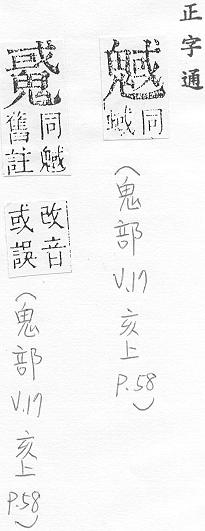 正字通
魊
同
蜮
(鬼部 V.17 亥上 P.58)
同魊
舊註
改音
或誤
(鬼部 V.17 亥上 P.58)